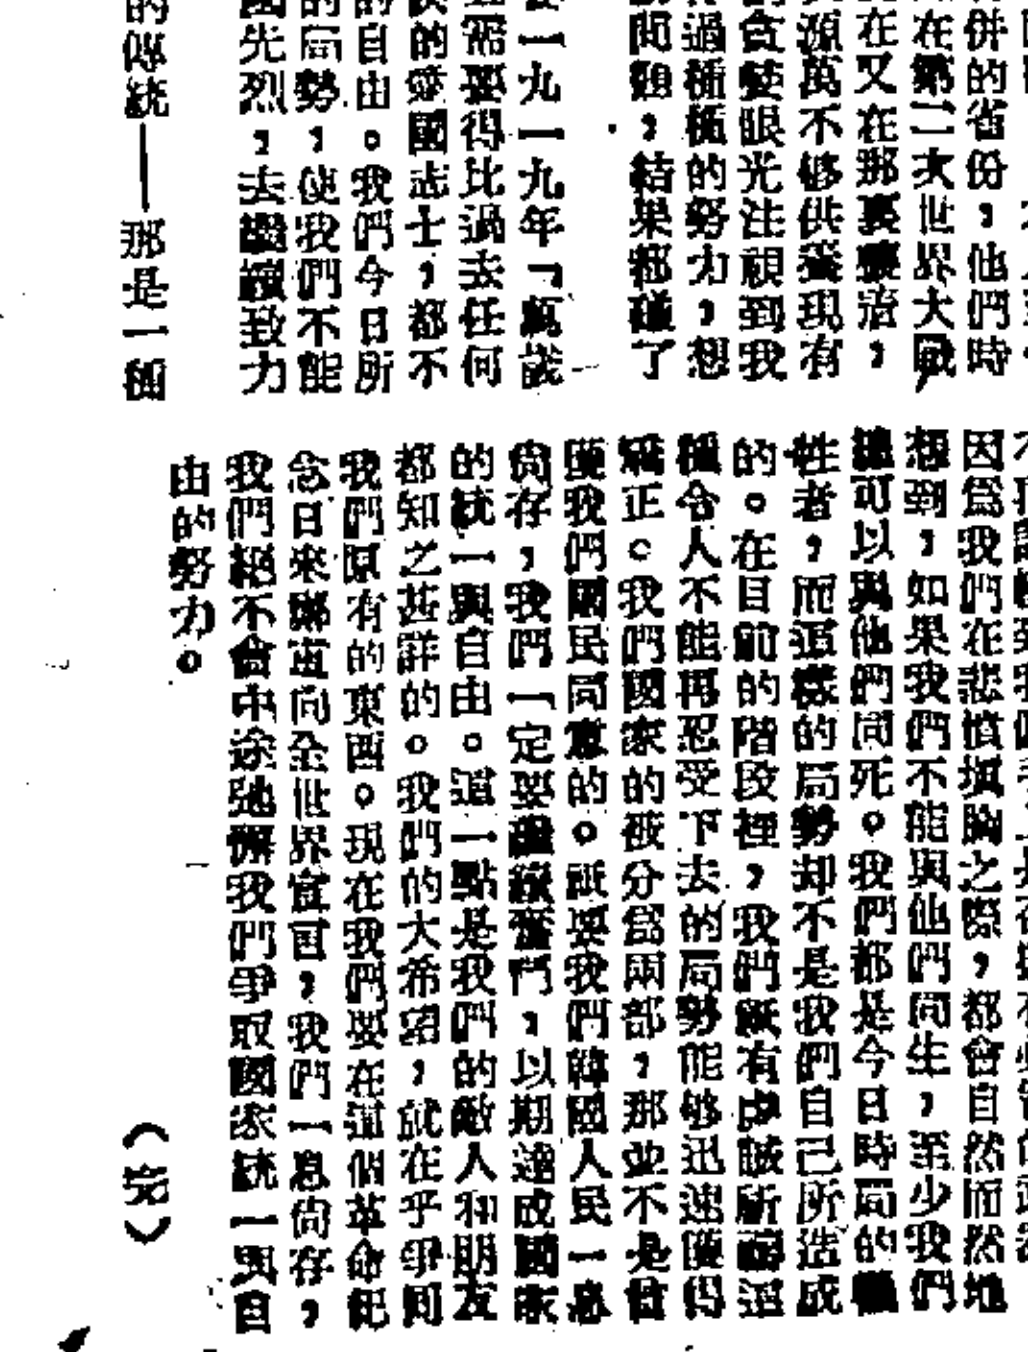 併的省份，他們時
在第二次世界大戰
在又在那裏
源萬不够供養現有
貪婪眼光注視到我
過種種的努力，想
問題，結果都碰了
一九一九年「
需要得比過去任何
的愛國志士，都不
的自由。我們今日所
的局勢，使我們不能
國先烈，去繼續致力
的傳統——那是一個
因爲我們在悲憤填胸之際，都會自然而然地
想到，如果我們不能與他們同生，至少我們
總可以與他們同死。我們都是今日時局的犧
牲者，而這樣的局勢却不是我們自己所造成
的。在目前的階段裡，我們
種令人不能再忍受下去的局勢能够迅速獲得
矯正。我們國家的被分爲兩部，那並不是曾
獲我們國民同意的。祇要我們韓國人民一息
尚存，我們一定要繼續奮鬥，以期達成國家
的統一與自由。這一點是我們的敵人和朋友
都知之甚詳的。我們的大希望，就在乎爭回
我們原有的東西。現在我們要在這個革命紀
念日來鄭重向全世界宣言，我們一息尚存，
我們絕不會中途弛懈我們爭取國家統一與自
由的努力。
（完）